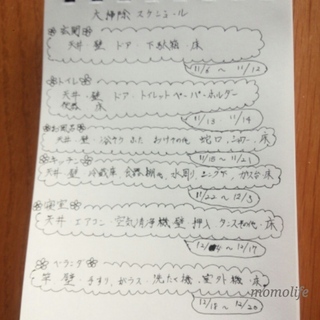 大掃除スケジュール
玄関
天井・壁 ドア・下駄箱・床
11/6 〜 11/12
トイレ
天井・壁 ドア・トイレットペーパーホルダー
便器 床
11/13 11/14
お風呂
天井・壁・浴そう ふた おけその他 蛇口 シャワー 床
11/15 〜 11/21
キッチン
天井・壁 冷蔵庫 食器棚 水周り ガス台 床
11/22 〜 12/3
寝室
天井 エアコン 空気清浄機 壁 押入 タンスその他・床
〜 12/17
ベランダ
竿 壁 手すり ガラス・洗たく機 室外機 床
12/18 〜 12/20
momolife